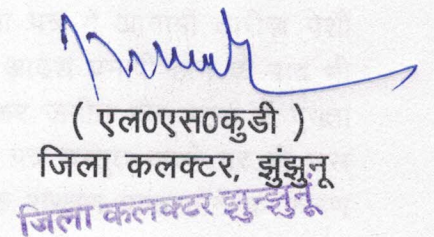 ( एल0एस0कुडी )
जिला कलक्टर, झुंझुनू
जिला कलक्टर झुन्झुनूं